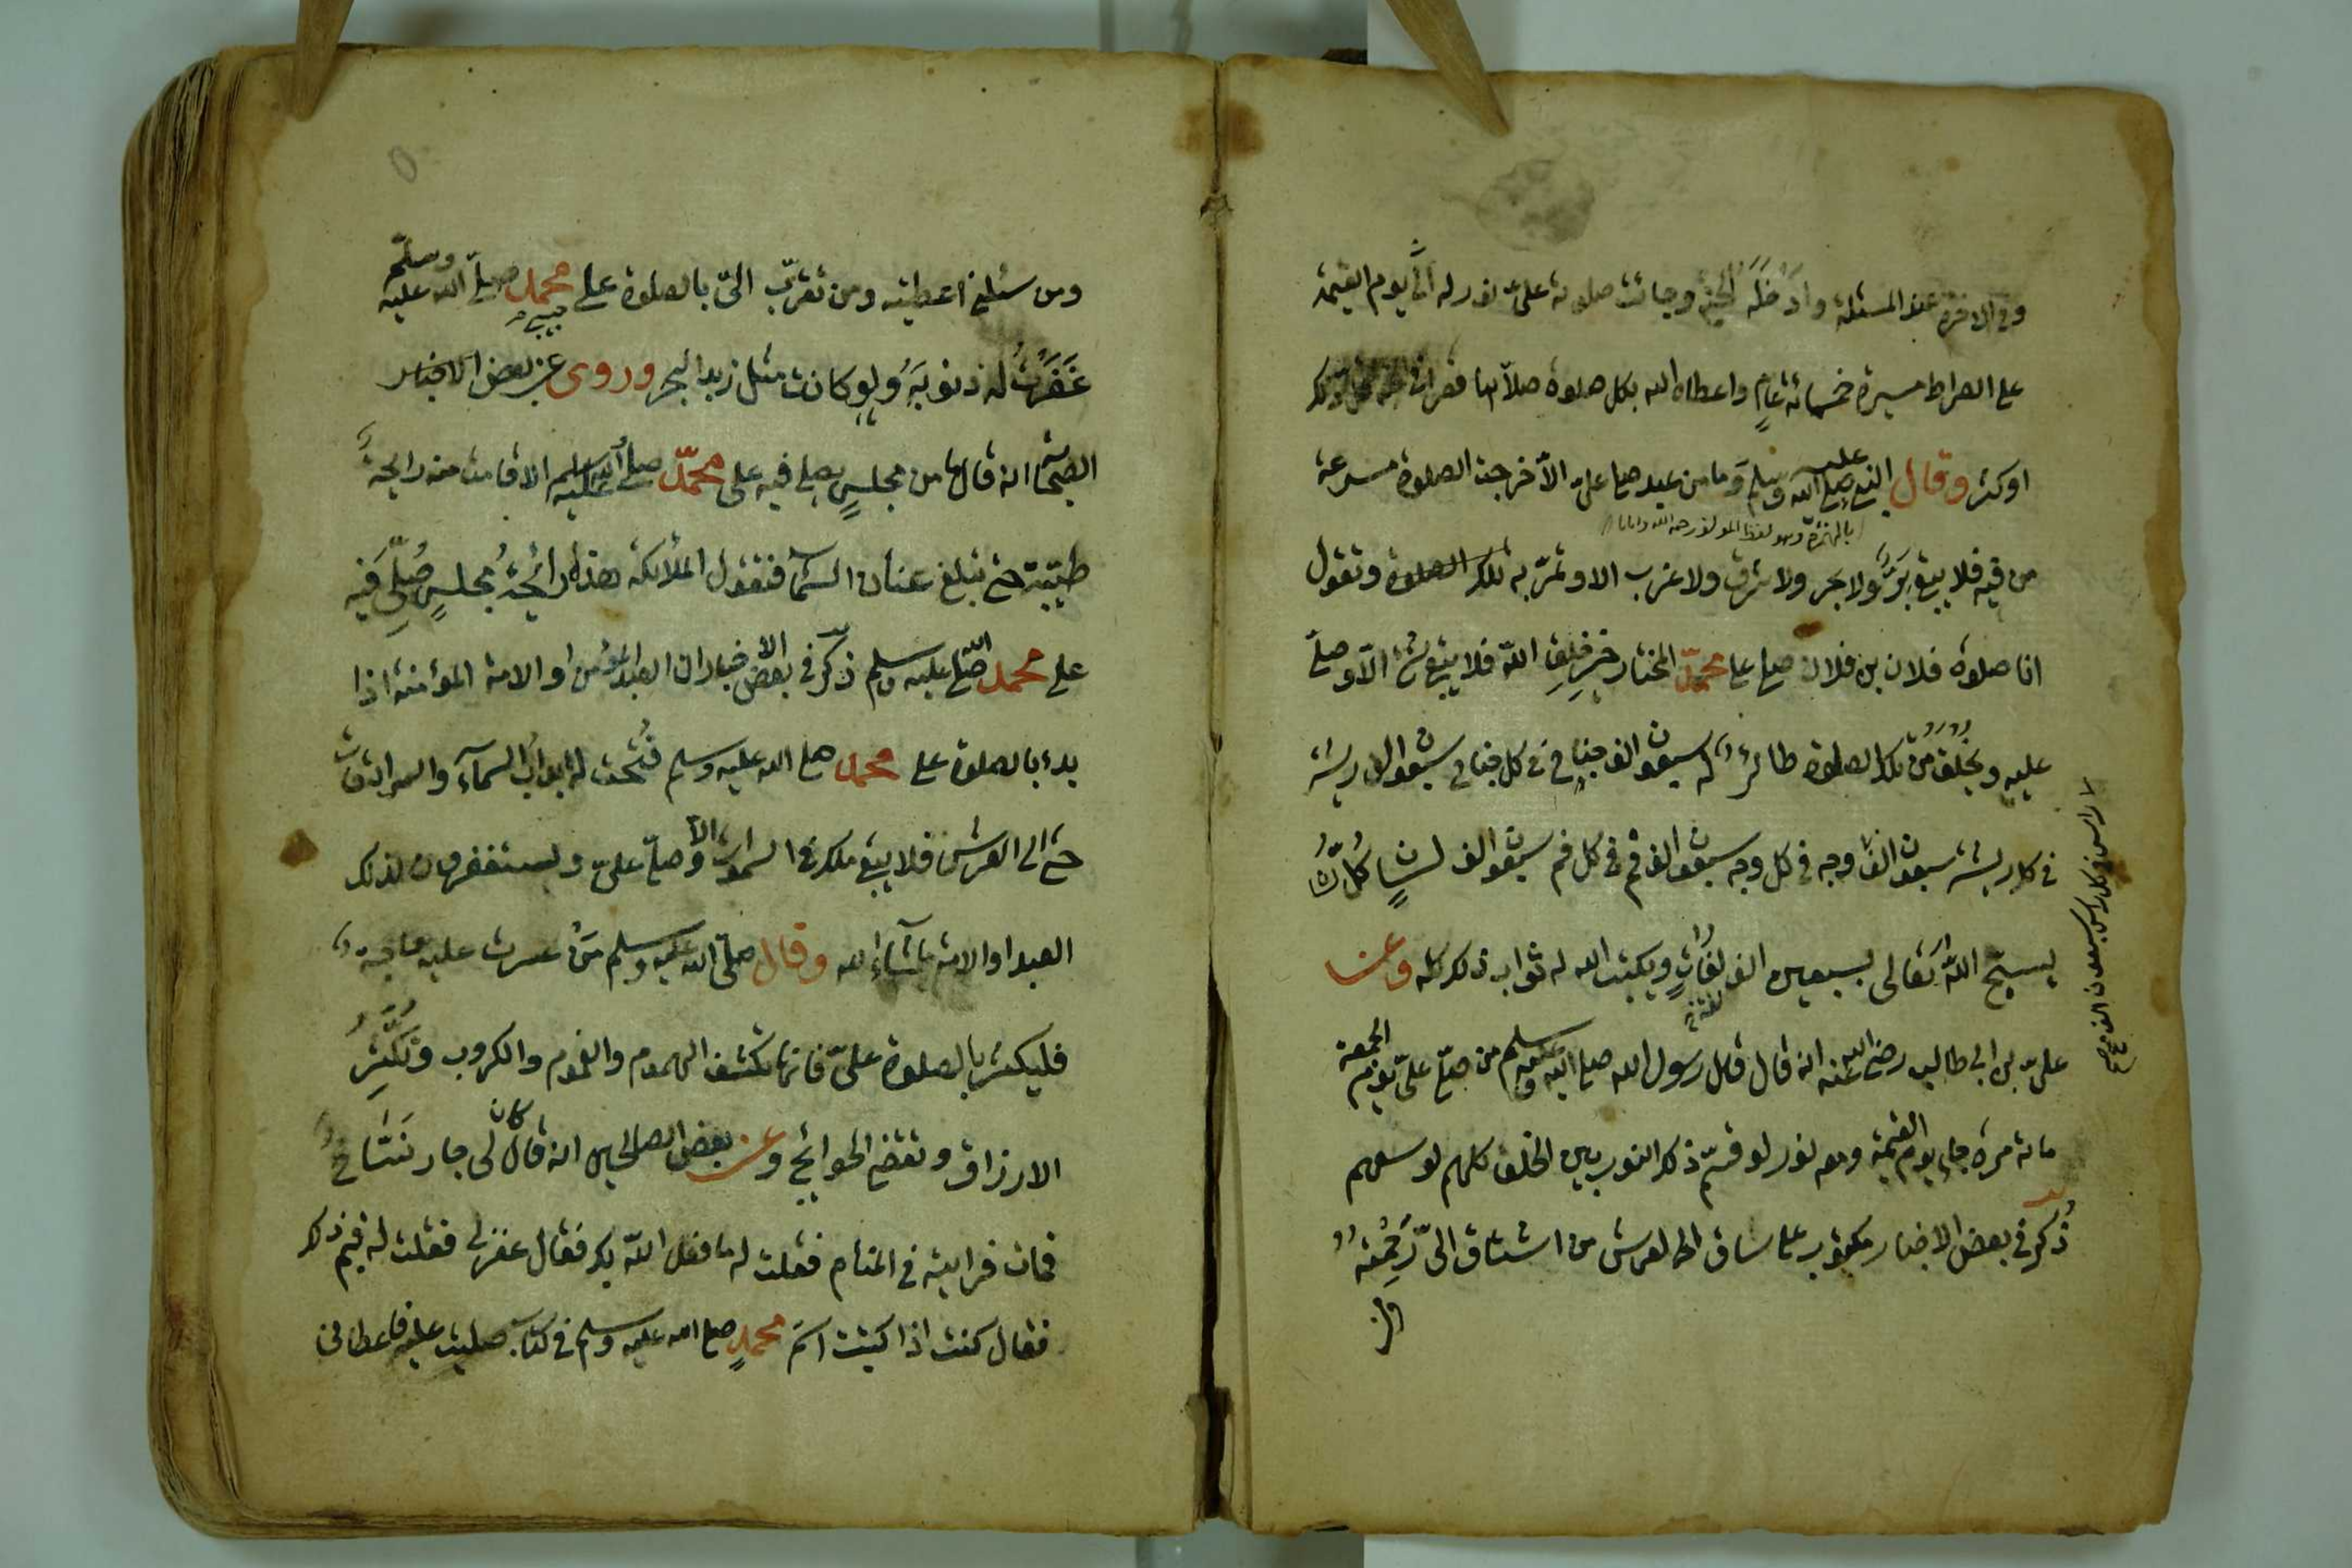 وفى الاخرة عند المسئلة وادخله الجنة وجائت صلوته علىّ نور له الى يوم القيمة
على الصراط مسيرة خمسمائة عامٍ واعطاه الله بكل صلوة صلاّها قصرا فى الجنة قل ذلك
او كثر وقال النبى صلى الله عليه وسلم وما من عبد صلى علىّ الاّ خرجت الصلوة مسرعة
بالهمزة وهو لفظ المؤلف رحمه الله
من فيه فلا يبقى بَرٌّ ولا بحر ولا شرق ولا غرب الا وتمرّ به تلك الصلوة وتقول
انا صلوة فلان بن فلان صلى على محمّد المختار خيرِ خلقِ اللّه فلا يبقى شئ الاّ وصلّى
عليه ويخلق من تلك الصلوة طائر له سبعون الف جناح فى كل جناح سبعون الف ريشة
فى كل ريشة سبعون الف وجه فى كل وجه سبعون الف فم فى كل فم سبعون الف لسانٍ كُلّ لسان
راس فى كل راس سبعون الف وجه صح
يسبّح اللّه تعالى بسبعين الف لغاتٍ ويكتب الله له ثواب ذلك كله وعن
علىّ بن ابى طالب رضى الله عنه انه قال قال رسول الله صلى الله عليه وسلم من صلّى علىّ يوم الجمعة
مائة مرة جاء يوم القيمة ومعه نور لو قسّم ذلك النور بين الخلق كلهم لوسعهم
ذُكر فى بعض الاخبار مكتوب على ساق العرش من اشتاق الىّ رَحِمْته
ومن
ومن سئلنى اعطيته ومن تقرّب الىّ بالصلوة على حبيبى محمد صلّى الله عليه وسلّم
غَفَرْتُ له ذنوبَهُ ولو كانت مثل زبد البحر وروى عن بعض الاخيار
الصحابة انه قال ما من مجلسٍ يصلى فيه على محمّد صلى الله عليه وسلم الا قامت منه رايحةٌ
طيّبة حتى تبلغ عنان السمآء فتقول الملائكة هذه رائحةُ مجلسٍ صُلِّى فيه
على محمد صلى الله عليه وسلم ذكر فى بعض الاخبار ان العبد المؤمن او الامة المؤمنة اذا
بدء بالصلوة على محمد صلى الله عليه وسلم فُتحت له ابواب السمآء والسرادقات
حتى الى العرش فلا يبقى ملك فى السموات الاّ وصلّى علىّ ويستغفرون لذلك
العبد او الامة ما شآء الله وقال صلّى الله عليه وسلم مَنْ عسرت عليه حاجة
فليكثر بالصلوة علىّ فانها تكشف الهموم والغموم والكروب وتُكَثِّرُ
الارزاق وتقضى الحوايج وعن بعض الصالحين انه قال كان لى جار نَسَّاخٌ
فمات فرايته فى المنام فقلت له ما فعل اللّه بك فقال غفر لى فقلت له فبم ذلك
فقال كنت اذا كتبت اسمَ محمدٍ صلى الله عليه وسلم فى كتاب صليت عليه فاعطانى